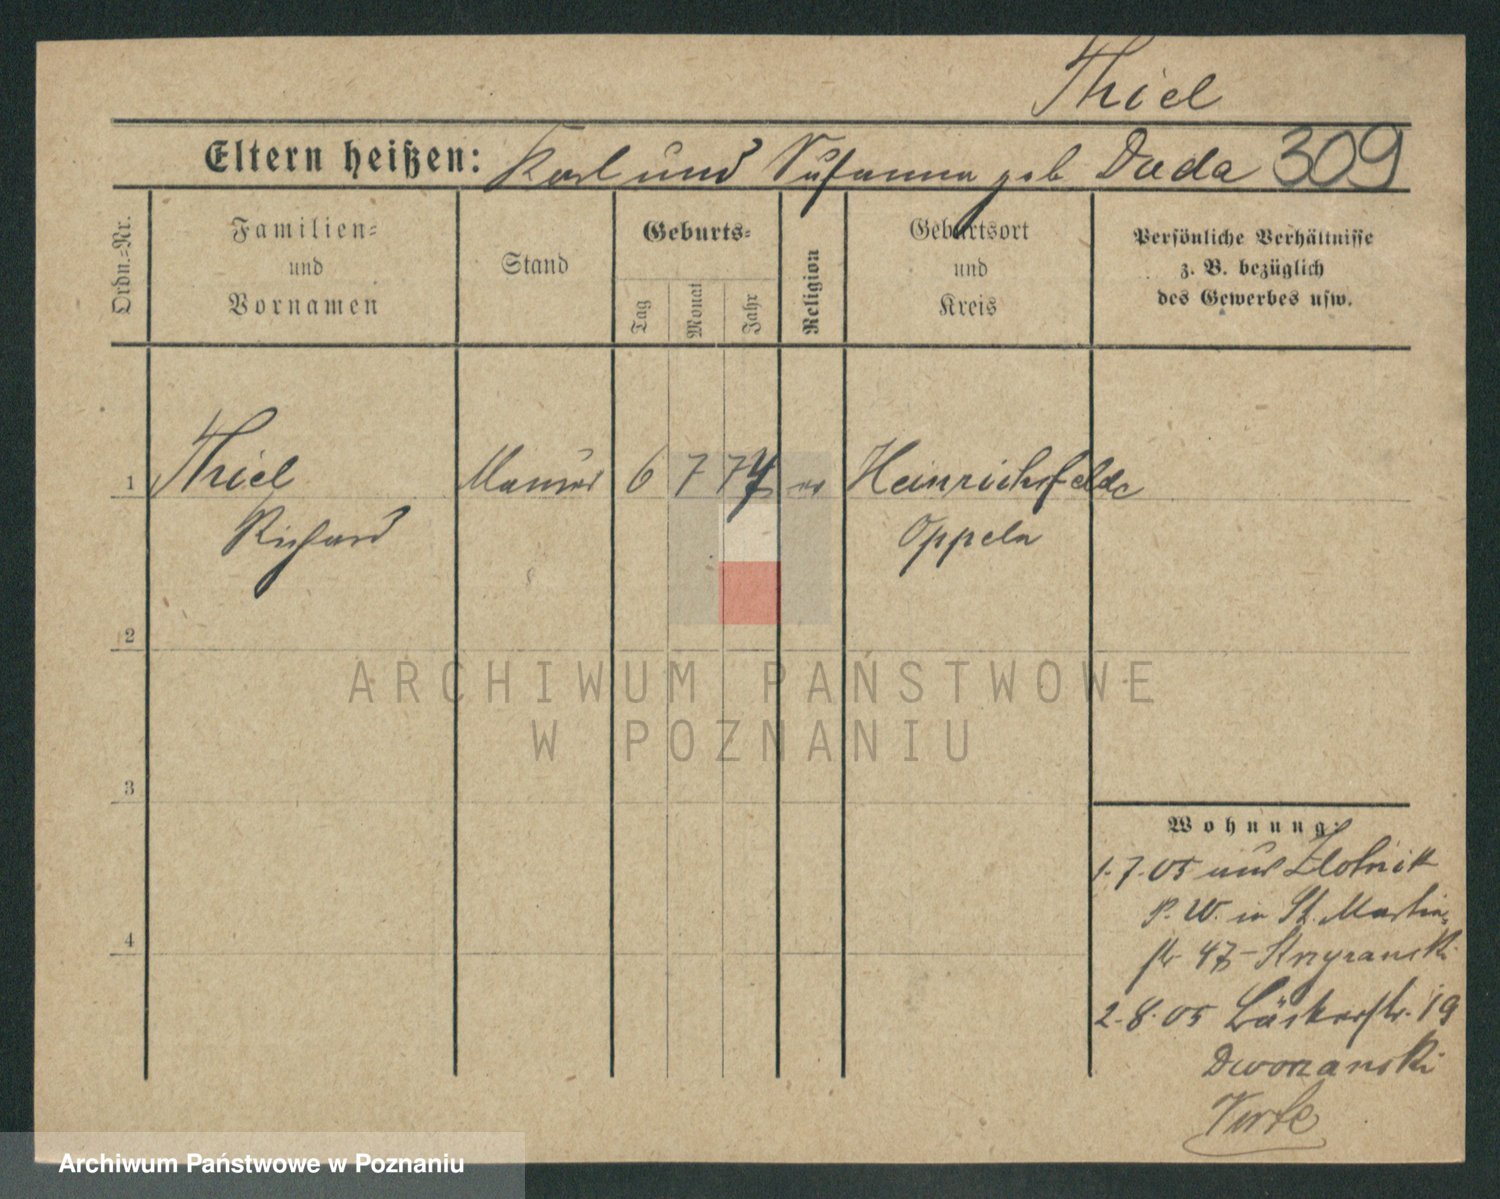 Thiel
Eltern heißen: Karl und Susanna geb Dada 309
Ordn.-Nr.
Familien-
und
Vornamen
Stand
Geburts-
Tag
Monat
Jahr
Religion
Geburtsort
und
Kreis
Persönliche Verhältnisse
z. B. bezüglich
des Gewerbes usw.
1 Thiel Maurer 6 7 77 Heinrichsfelde
Richard Oppeln
2
ARCHIWUM PAŃSTWOWE
W POZNANIU
3
Wohnung:
1.7.05 aus Zlotnik
P. W. in St. Martin-
4
str 47
2.8.05 Bäckerstr. 19
Archiwum Państwowe w Poznaniu